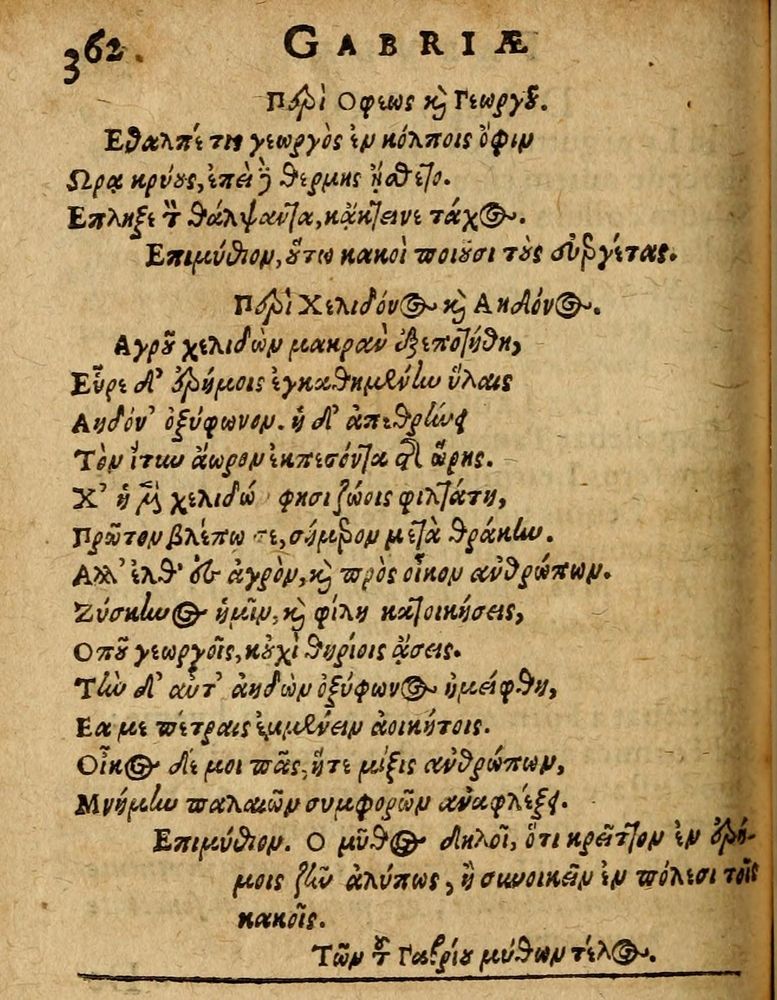 362. GABRIÆ
Περὶ Οφεως καὶ Γεωργοῦ.
Εθαλπέ τις γεωργὸς ἐν κόλποις ὄφιν
Ωρᾳ κρύους, ἐπεὶ δὲ θερμης ᾔσθετο.
Επληξε τὸν θάλψαντα, κᾄκτεινε τάχος.
Επιμύθιον, οὕτω κακοὶ ποιοῦσι τοὺς εὐεργέτας.
Περὶ Χελιδόνος καὶ Αηδόνος.
Αγροῦ χελιδὼν μακρὰν ἐξεποτήθη,
Εὗρε δ' ἐρήμοις ἐγκαθημένην ὕλαις
Αηδόν' ὀξύφωνον. ἡ δ' ἀπεθρήνει
Τὸν ἴτυν ἄωρον ἐκπεσόντα τῆς ὥρης.
Χ' ἡ μὲν χελιδὼ φησι ζώοις φιλτάτη,
Πρῶτον βλέπω σε, σήμερον μετὰ θράκην.
Αλλ' ἐλθ' ἐς ἀγρὸν, καὶ πρὸς οἶκον ἀνθρώπων.
Σύσκηνος ἡμῖν, καὶ φίλη κατοικήσεις,
Οποῦ γεωργοῖς, κοὐχὶ θηρίοις ᾄσεις.
Τὴν δ' αὖτ' ἀηδὼν ὀξύφωνος ἠμείφθη,
Εα με πέτραις ἐμμένειν ἀοικήτοις.
Οἶκος δέ μοι πᾶς, ἥτε μίξις ἀνθρώπων,
Μνήμην παλαιῶν συμφορῶν ἀναφλέξει.
Επιμύθιον. Ο μῦθος δηλοῖ, ὅτι κρεῖττον ἐν ἐρή-
μοις ζῆν ἀλύπως, ἢ συνοικεῖν ἐν πόλεσι τοῖς
κακοῖς.
Τῶν τοῦ Γαβρίου μύθων τέλος.